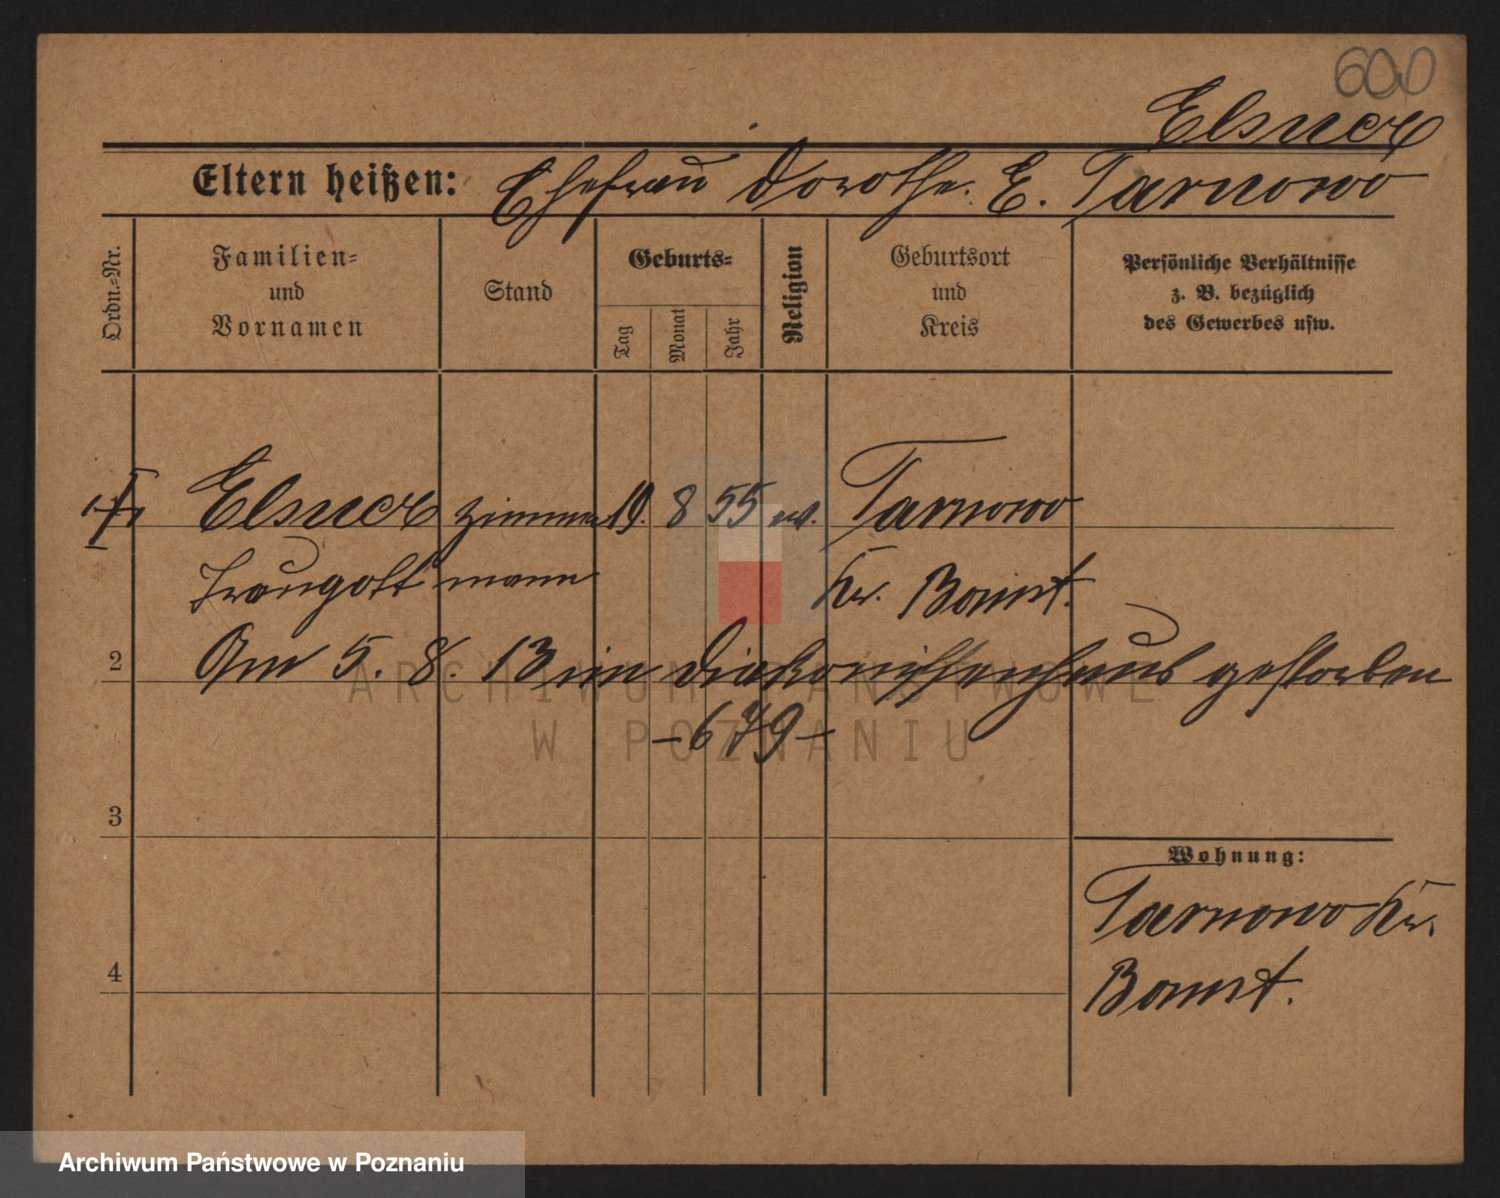 600
Elsner
Eltern heißen: Ehefrau Dorothe. E. Tarnowo
Ordn.-Nr.
Familien- und Vornamen
Stand
Geburts-
Tag
Monat
Jahr
Religion
Geburtsort und Kreis
Persönliche Verhältnisse z. B. bezüglich des Gewerbes usw.
Elsner Zimmer 19. 8 55 ev. Tarnowo
Traugott mann Kr. Bomst.
Am 5. 8. 13 im Diakonissenhaus gestorben
2
- 679 -
3
Wohnung:
Tarnowo Kr.
4
Bomst.
ARCHIWUM PAŃSTWOWE
W POZNANIU
Archiwum Państwowe w Poznaniu